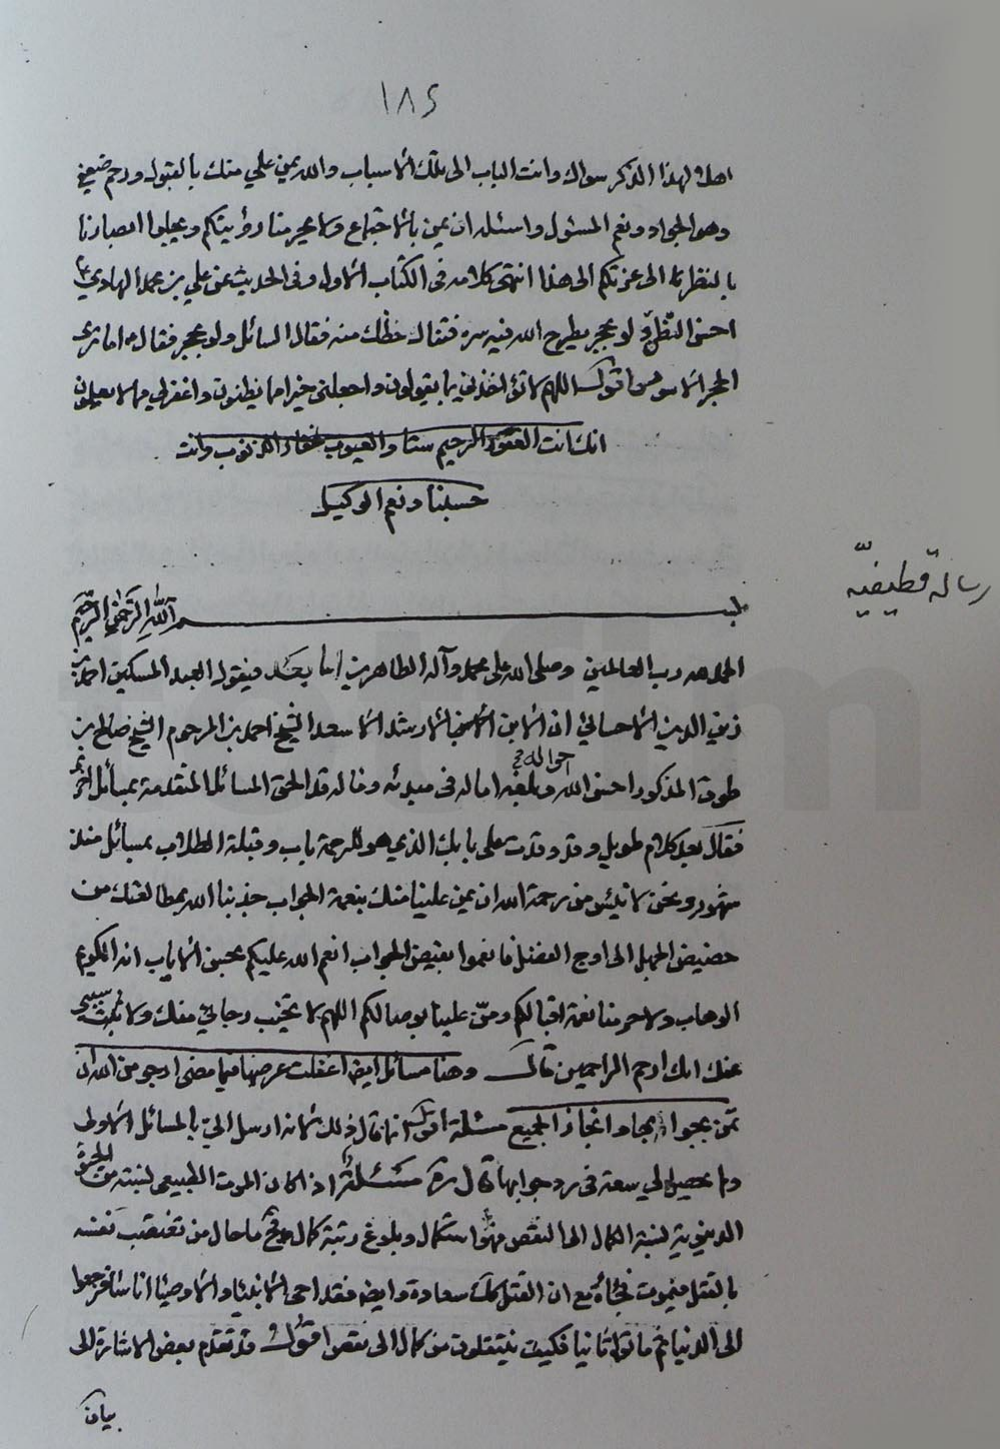 ١٨٤
اهل لهذا الذكر سواك وانت الباب الى تلك الاسباب والله يمن علي منك بالقبول ورحم ضعيف
وهو الجواد ونعم المسئول واسئله ان يمن بالاجتماع ولا يحرمنا رؤيتكم ويجلوا ابصارنا
بالنظر الى عزتكم الى هنا انتهى كلامه فى الكتاب الاول وفى الحديث عن علي بن محمد الهادي ع
احسن الظن ولو بحجر يطرح الله فيه سره فتنال حظك منه فقال السائل ولو بحجر فقال اما ترى
الحجر الاسود اقول اللهم لا تؤاخذنى بما يقولون واجعلنى خيرا مما يظنون واغفر لي ما لا يعلمون
انك انت الغفور الرحيم ستار العيوب غفار الذنوب وانت
حسبنا ونعم الوكيل
رسالة قطيفيّه
بسم الله الرحمن الرحيم
الحمد لله رب العالمين وصلى الله على محمد وآله الطاهرين اما بعد فيقول العبد المسكين احمد بن
زين الدين الاحسائي ان الابن الارشد الاسعد الشيخ احمد بن المرحوم الشيخ صالح بن
طوق المذكور احسن الله احواله وبلغه اماله فى مبدئه ومآله قد الحق المسائل المتقدمة بمسائل اخر
فقال بعد كلام طويل وقد وقفت على بابك الذي هو للرحمة باب وقبلة الطلاب بمسائل منذ
شهور ونحن لا نيئس من رحمة الله ان يمن علينا منك بنعمة الجواب جذبنا الله بمطالعتك من
حضيض الجهل الى اوج الفضل فانعموا بفيض الجواب انعم الله عليكم بحسن الاياب انه الكريم
الوهاب ولا حرمنا نعمة اقبالكم ومنّ علينا بوصالكم اللهم لا تخيب رجائي منك ولا تبت سببى
عنك انك ارحم الراحمين قال وهنا مسائل ايضا اغفلت عرضها فيما مضى ارجو من الله ان
تمن بجوابها وانجاز الجميع مسئلة اقول انما قال ذلك لانه ارسل الي بالمسائل الاولى
ولم يحصل لي سعة فى رد جوابها قال مسئلة اذا كان الموت الطبيعى لنسبته من الحيوة
الدنيوية لنسبة الكمال الى النقص فهو استكمال وبلوغ رتبة كمال فما حال من تغتصب نفسه
بالقتل فيموت فجاة مع ان القتل لك سعادة وايضا فقد احى الانبياء والاوصياء اناسا فرجعوا
الى الدنيا ثم ماتوا ثانيا فكيف ينتقلون من كمال الى نقص اقول قد تقدم بعض الاشارة الى
بيان